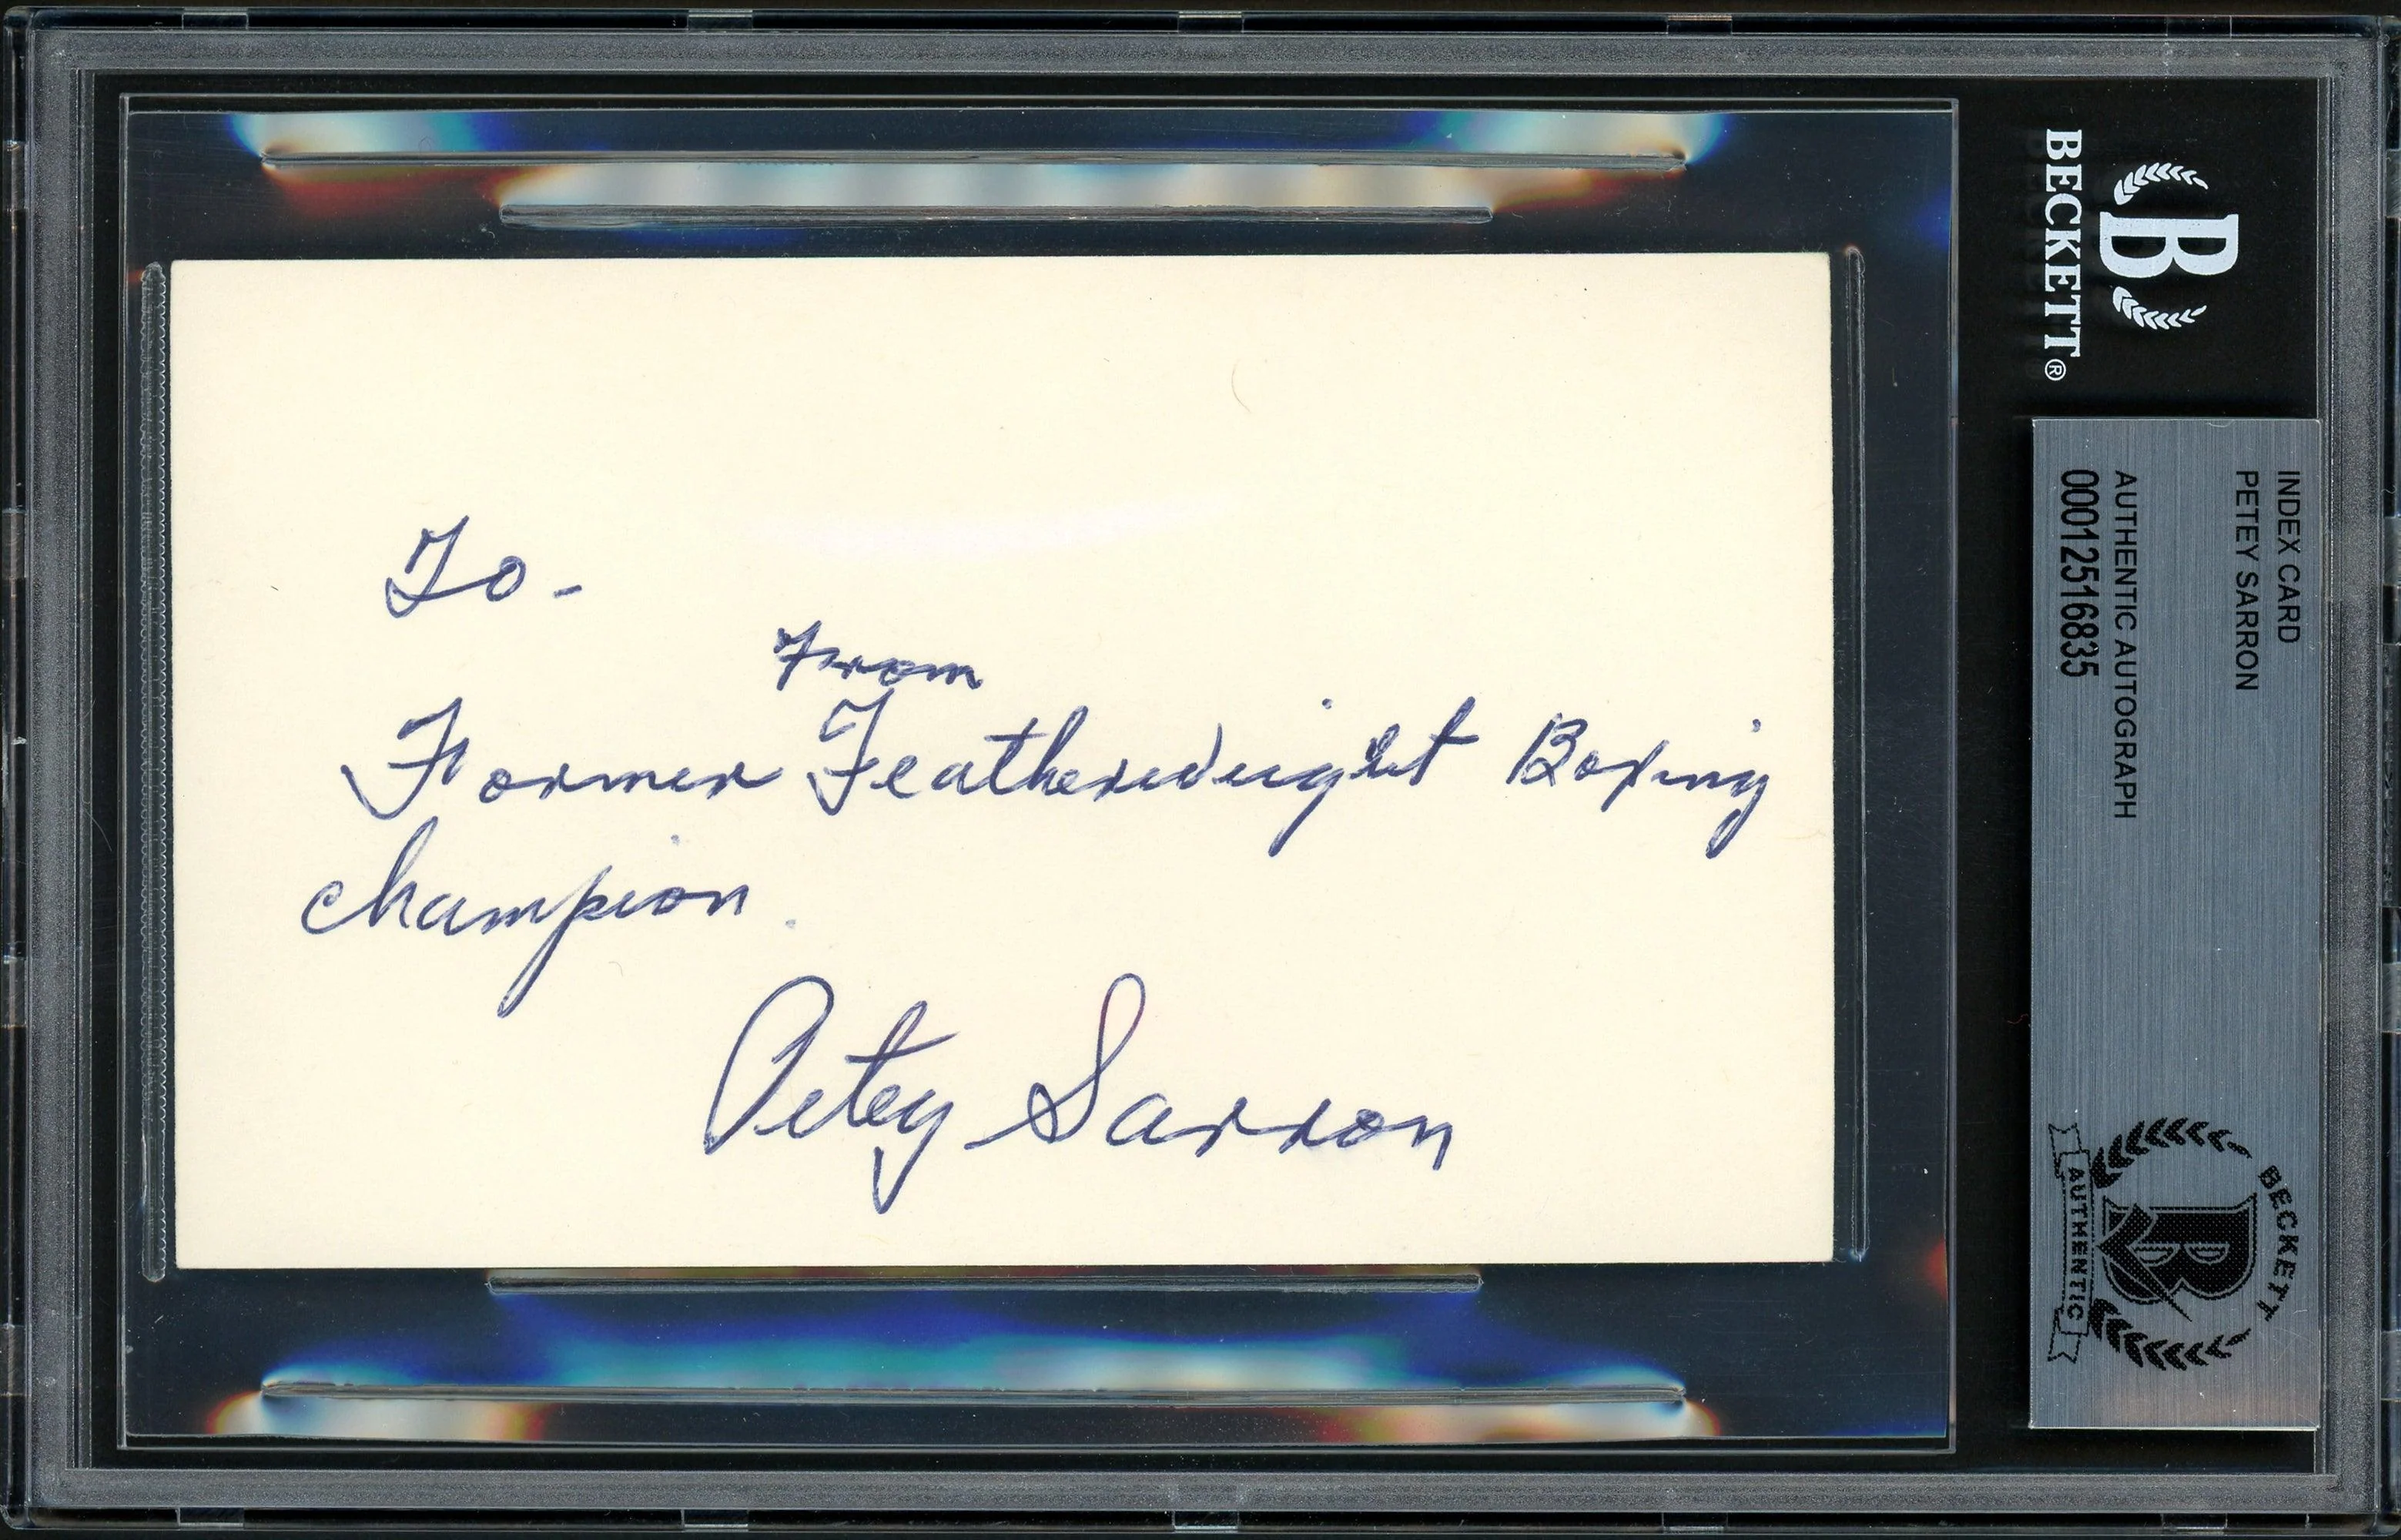 To -
From
Former Featherweight Boxing
champion.
Petey Sarron
BECKETT®
INDEX CARD
PETEY SARRON
AUTHENTIC AUTOGRAPH
00012516835
BECKETT
AUTHENTIC